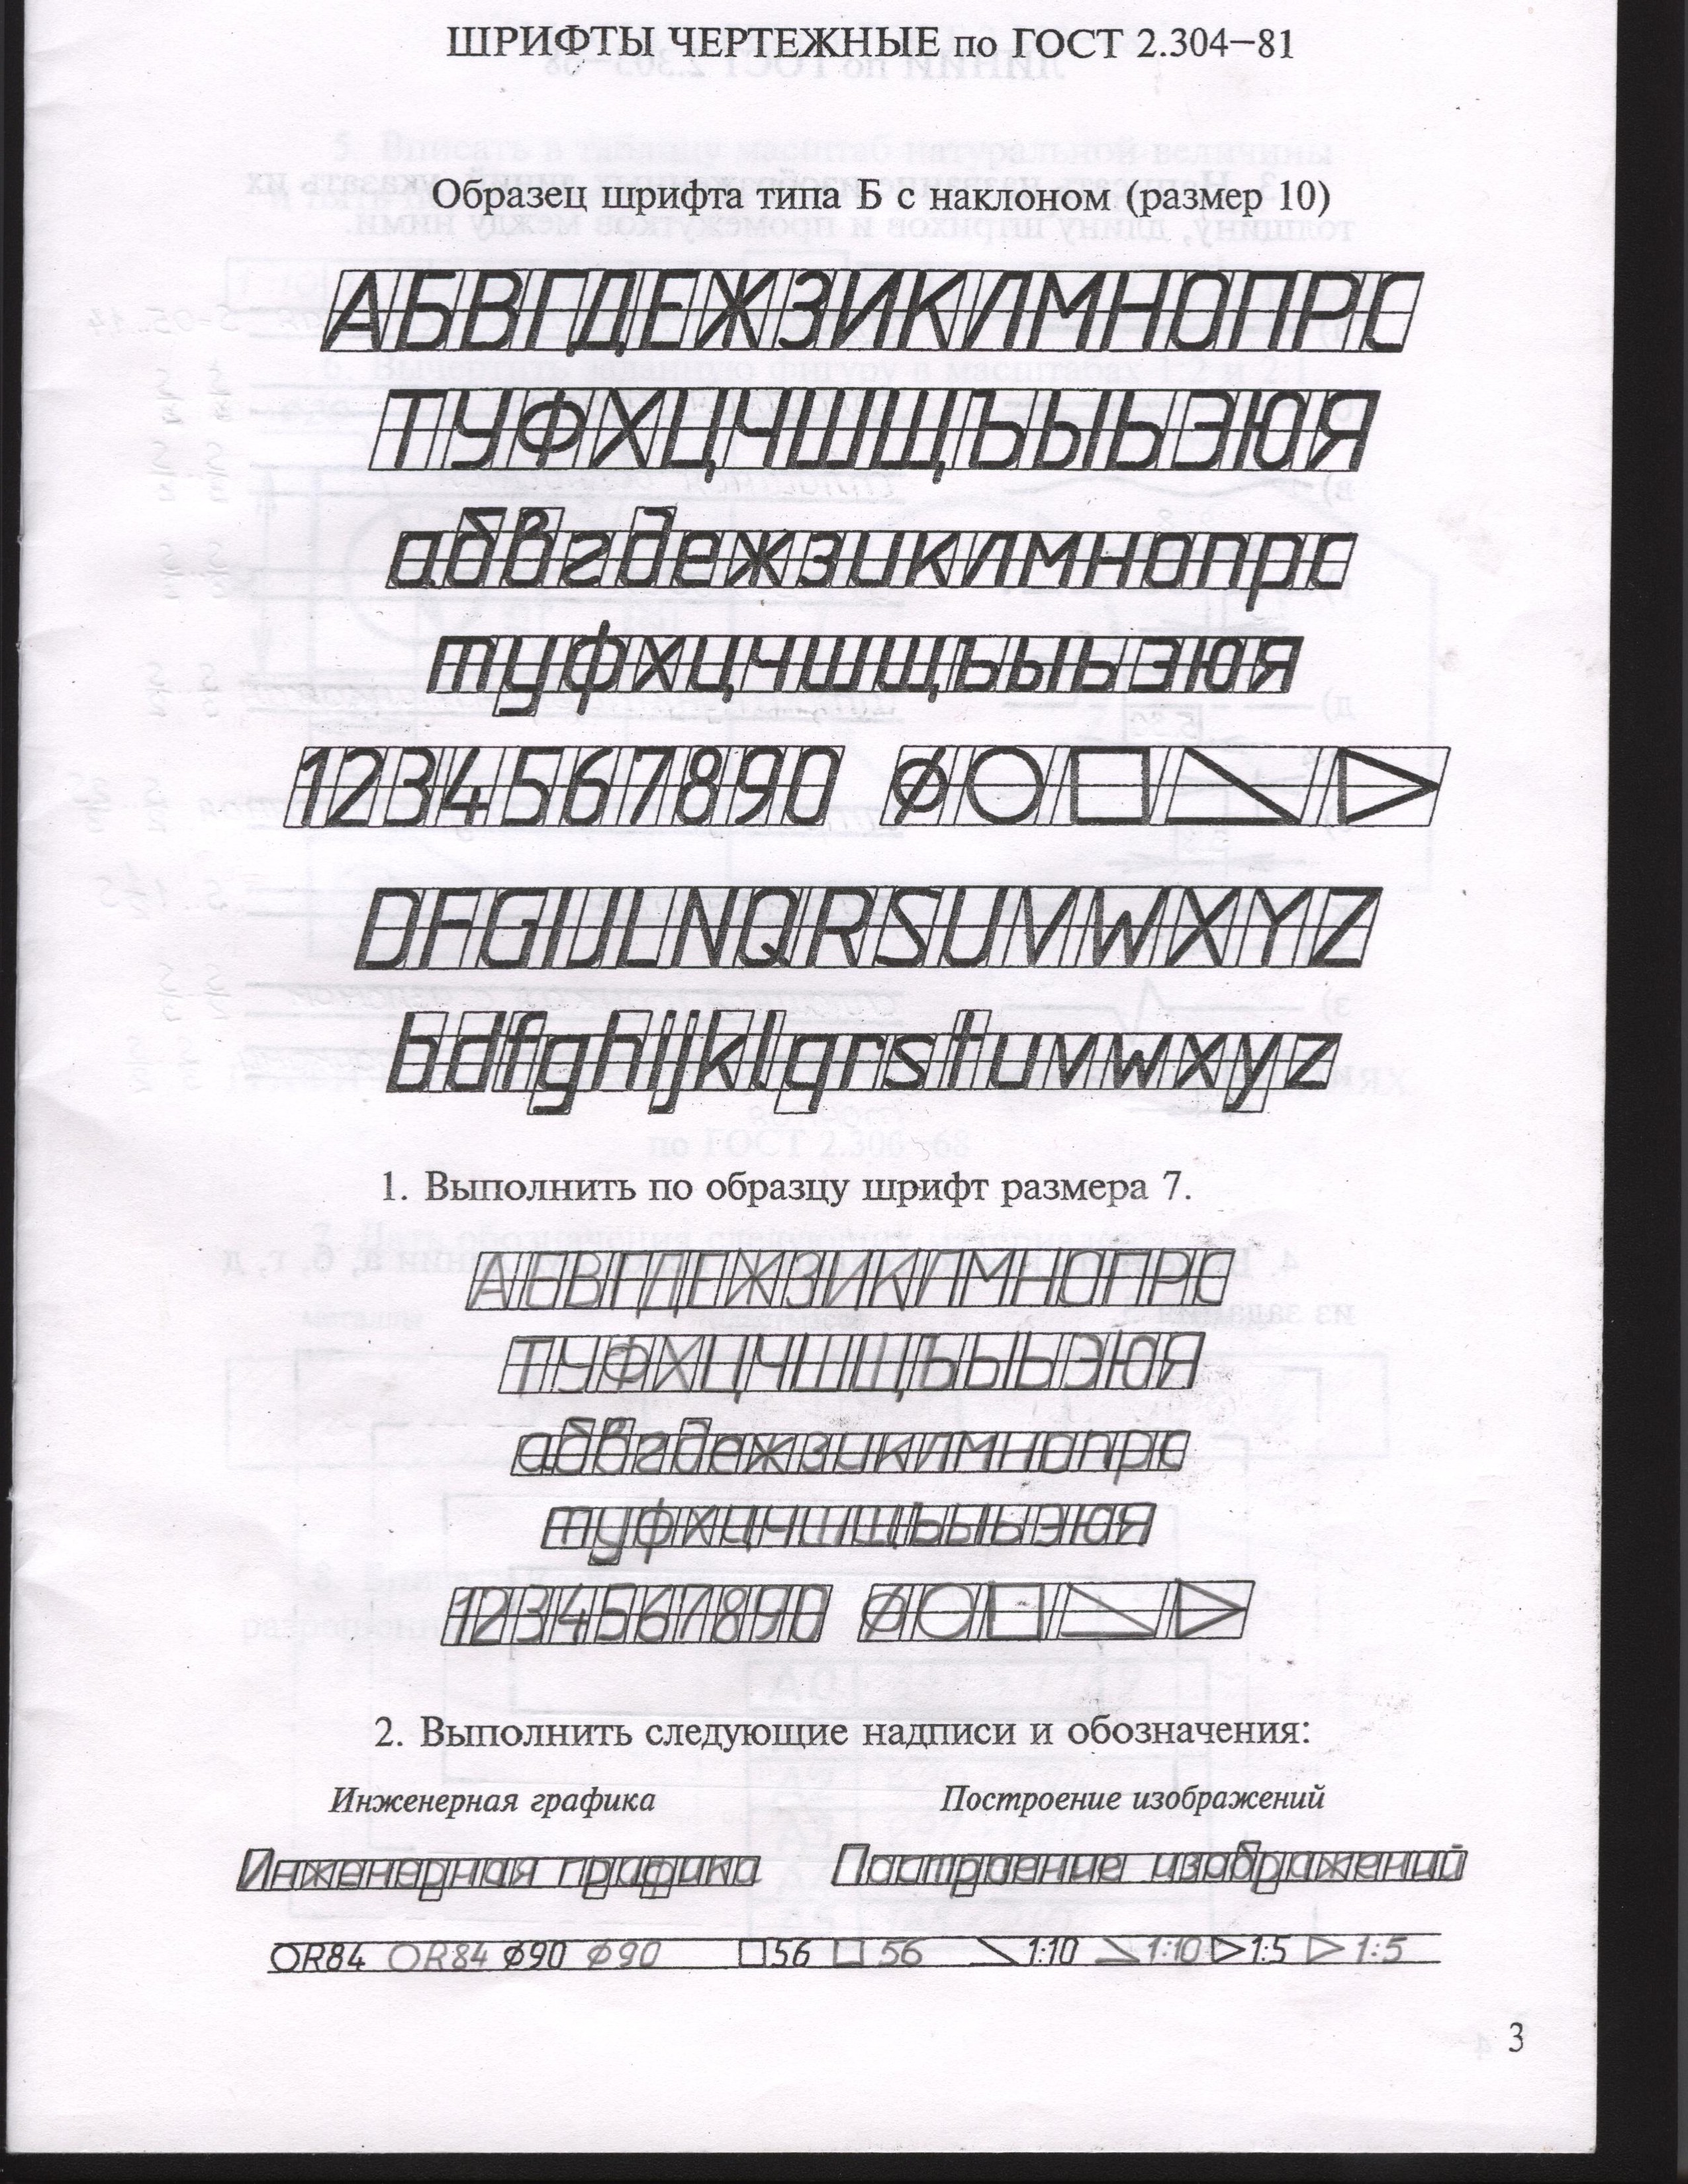 ШРИФТЫ ЧЕРТЕЖНЫЕ по ГОСТ 2.304–81
Образец шрифта типа Б с наклоном (размер 10)
АБВГДЕЖЗИКЛМНОПРС
ТУФХЦЧШЩЪЫЬЭЮЯ
абвгдежзиклмнопрс
туфхцчшщъыьэюя
1234567890 ⌀○□◺▷
DFGIJLNQRSUVWXYZ
bdfghijklqrstuvwxyz
1. Выполнить по образцу шрифт размера 7.
АБВГДЕЖЗИКЛМНОПРС
ТУФХЦЧШЩЪЫЬЭЮЯ
абвгдежзиклмнопрс
туфхцчшщъыьэюя
1234567890 ⌀○□◺▷
2. Выполнить следующие надписи и обозначения:
Инженерная графика Построение изображений
Инженерная графика Построение изображений
○R84 ○R84 ⌀90 ⌀90 □56 □56 ◺1:10 ◺1:10 ▷1:5 ▷1:5
3